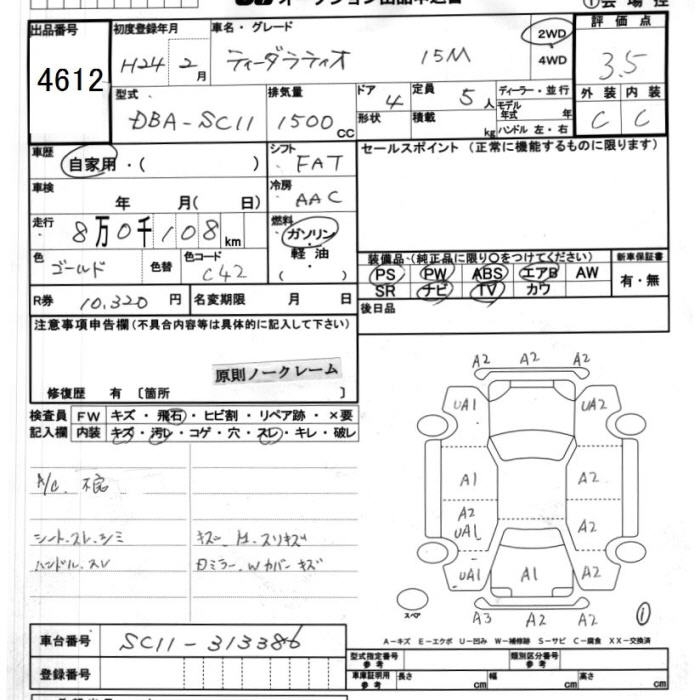 オークション出品申込書 ①会場控
出品番号 初度登録年月 車名・グレード 評価点
4612 H24 2月 ティーダラティオ 15M 2WD 4WD 3.5
型式 排気量 ドア 定員 ディーラー・並行 外装 内装
DBA-SC11 1500cc 4 5人 モデル年式 年 C C
形状 積載 kg ハンドル 左・右
車歴 シフト セールスポイント(正常に機能するものに限ります)
自家用・( ) FAT
車検 冷房
年 月( 日) AAC
走行 燃料
8万0千108km ガソリン・軽油・( )
色 色替 色コード 装備品(純正品に限り○をつけてください) 新車保証書
ゴールド C42 PS PW ABS エアB AW 有・無
R券 10,320円 名変期限 月 日 SR ナビ TV カワ
後日品
注意事項申告欄(不具合内容等は具体的に記入して下さい)
原則ノークレーム
修復歴 有〔箇所 〕
検査員 FW キズ・飛石・ヒビ割・リペア跡・×要
記入欄 内装 キズ・汚レ・コゲ・穴・スレ・キレ・破レ
A/C 不良
シート.スレ.シミ
ハンドル.スレ
Wカバーキズ
A2 A2 A2
UA1 UA2
A1 A2
A2 UA1 A2
UA1 A1 A2
A3 A2 A2
スペア
①
A-キズ E-エクボ U-凹み W-補修跡 S-サビ C-腐食 XX-交換済
車台番号 SC11-313386
型式指定番号 参考 類別区分番号 参考
登録番号
車庫証明用 参考 長さ cm 幅 cm 高さ cm